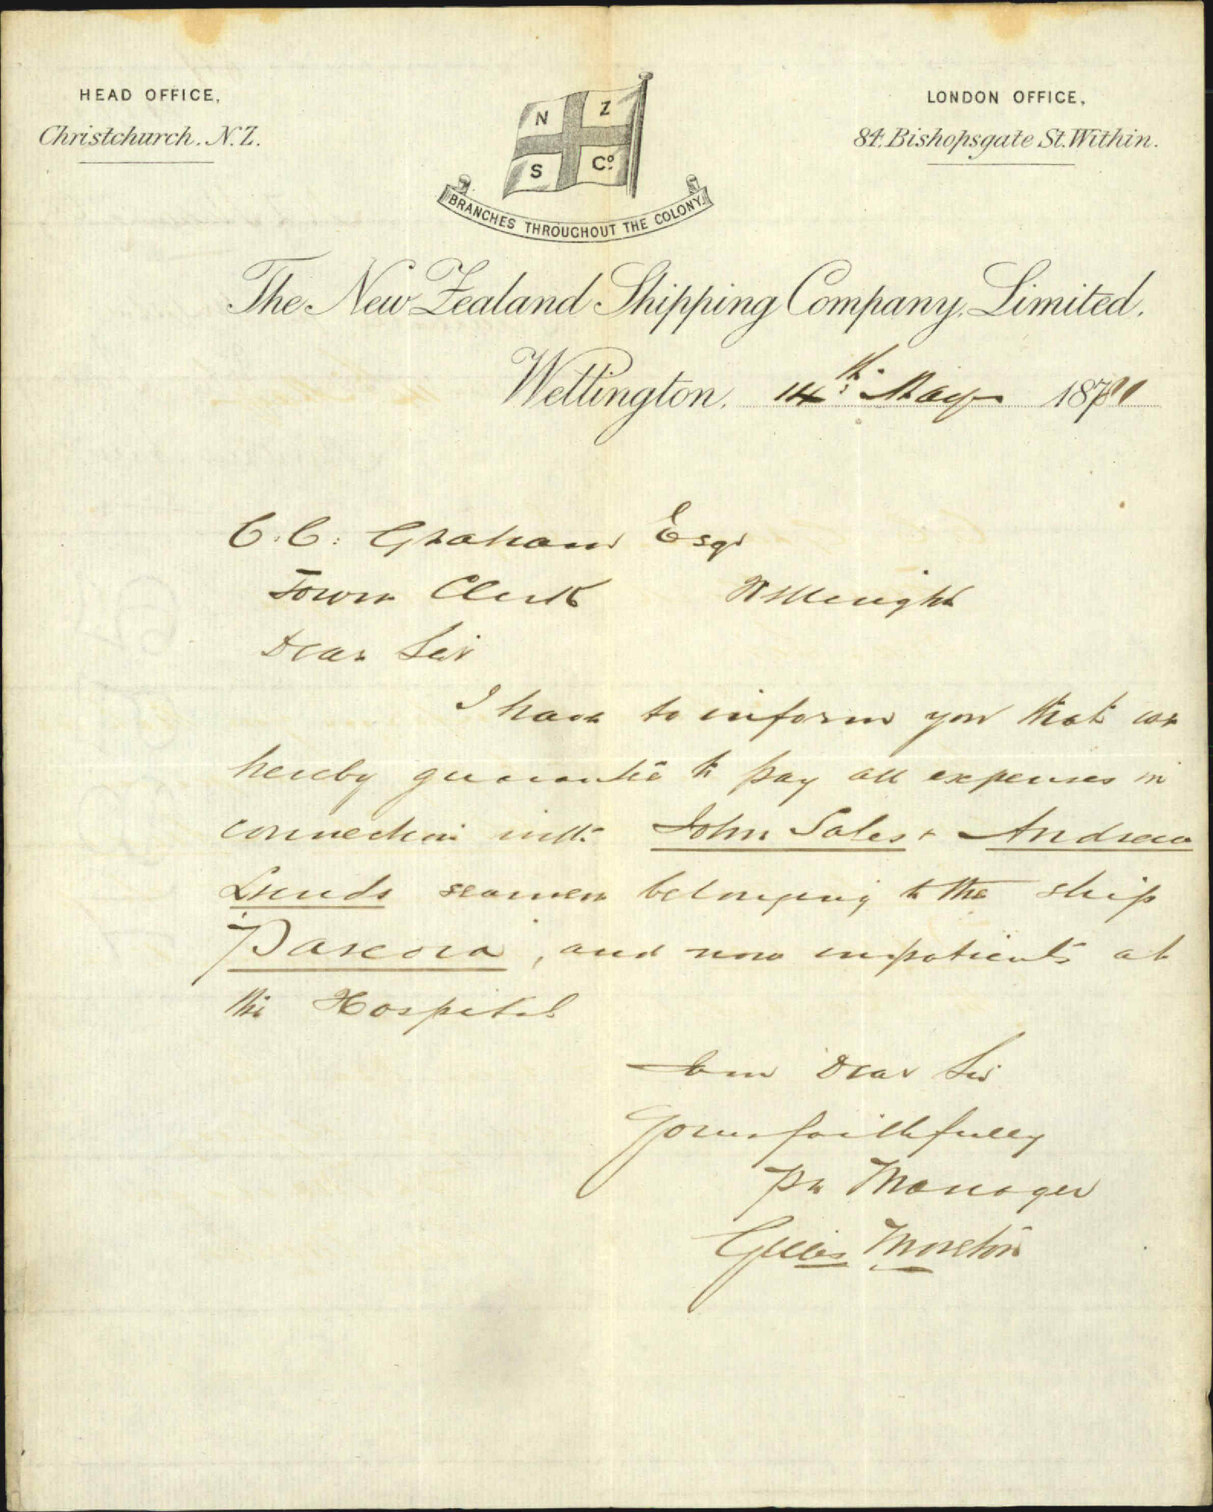 HEAD OFFICE,
Christchurch. N.Z.
N Z
S Co.
BRANCHES THROUGHOUT THE COLONY.
LONDON OFFICE,
84. Bishopsgate St. Within.
The New Zealand Shipping Company, Limited.
Wellington. 14th May 1881
C. C. Graham Esqr
Town Clerk
Dear Sir
I have to inform you that we
hereby guarantee to pay all expenses in
connection with John Sales + Andrew
Lunds seamen belonging to the ship
Pareora, and now inpatients at
the Hospital
I am Dear Sir
Yours faithfully
Pr Manager
Gilles Moreton